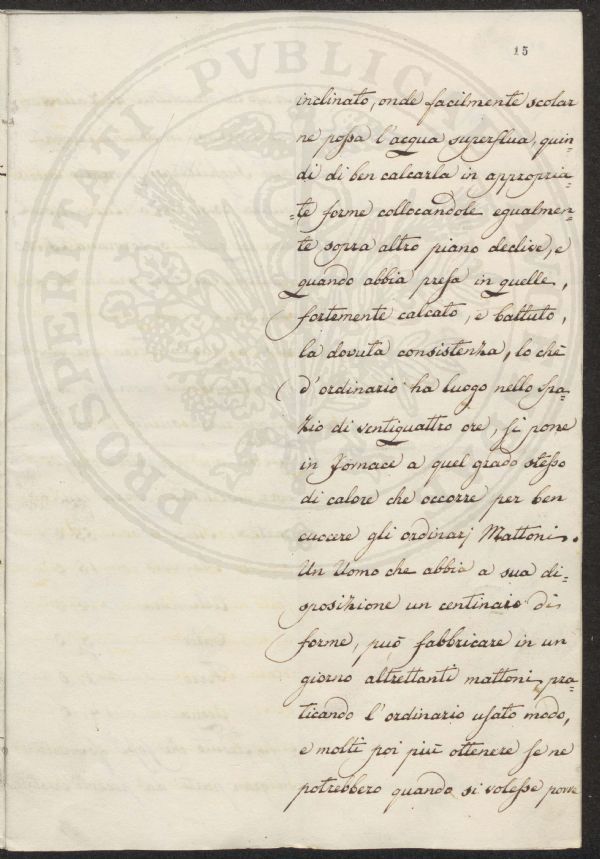 15
inclinato, onde facilmente scolar
ne possa l'acqua superflua, quin=
di di ben calcarla in appropria=
=te forme collocandole egualmen=
te sopra altro piano declive, e
quando abbia presa in quelle,
fortemente calcato, e battuto,
la dovuta consistenza, lo chè
d'ordinario ha luogo nello spa=
zio di ventiquattro ore, si pone
in Fornace a quel grado stesso
di calore che occorre per ben
cuocere gli ordinarj Mattoni.
Un Uomo che abbia a sua di=
sposizione un centinaio di
forme, può fabbricare in un
giorno altrettanti mattoni pra=
ticando l'ordinario usato modo,
e molti poi più ottenere se ne
potrebbero quando si volesse porre
PROSPERITATI PVBLICAE